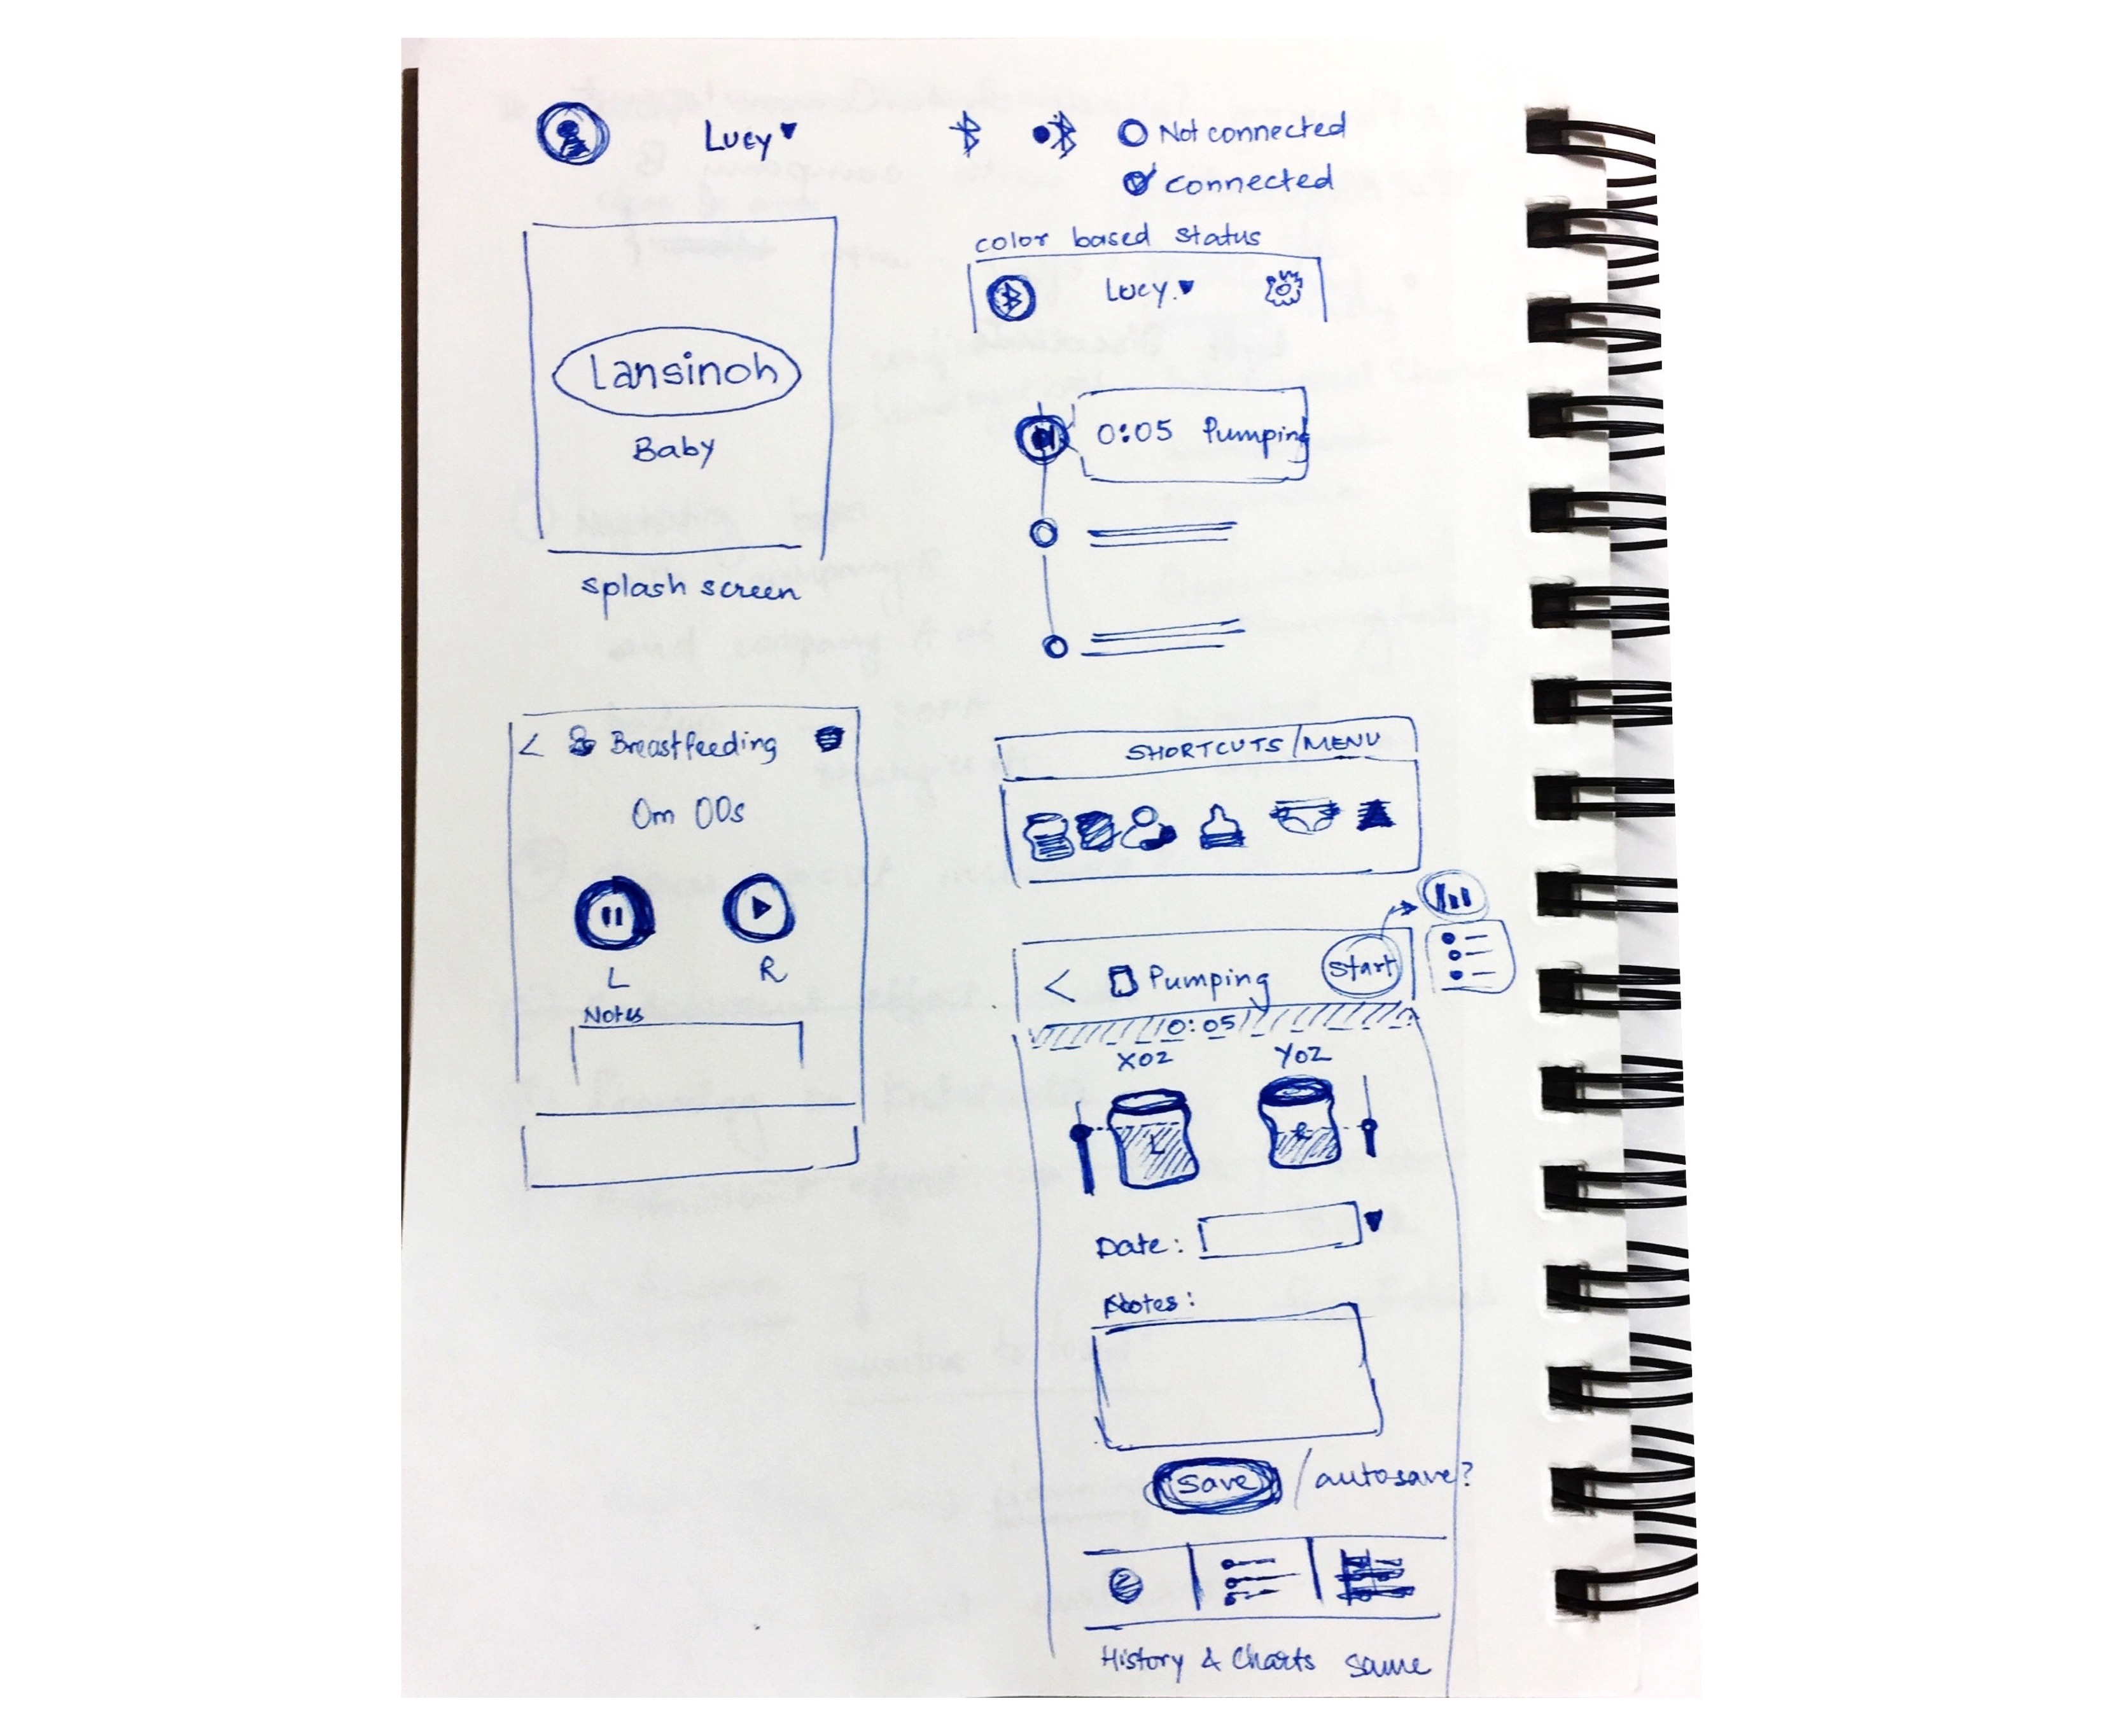 Lucy
Not connected
connected
color based status
Lucy
Lansinoh
Baby
splash screen
0:05 Pumping
< Breastfeeding
0m 00s
L
R
Notes
SHORTCUTS/MENU
< Pumping
Start
0:05
XOZ
YOZ
L
R
Date:
Notes:
Save / autosave?
History & Charts same